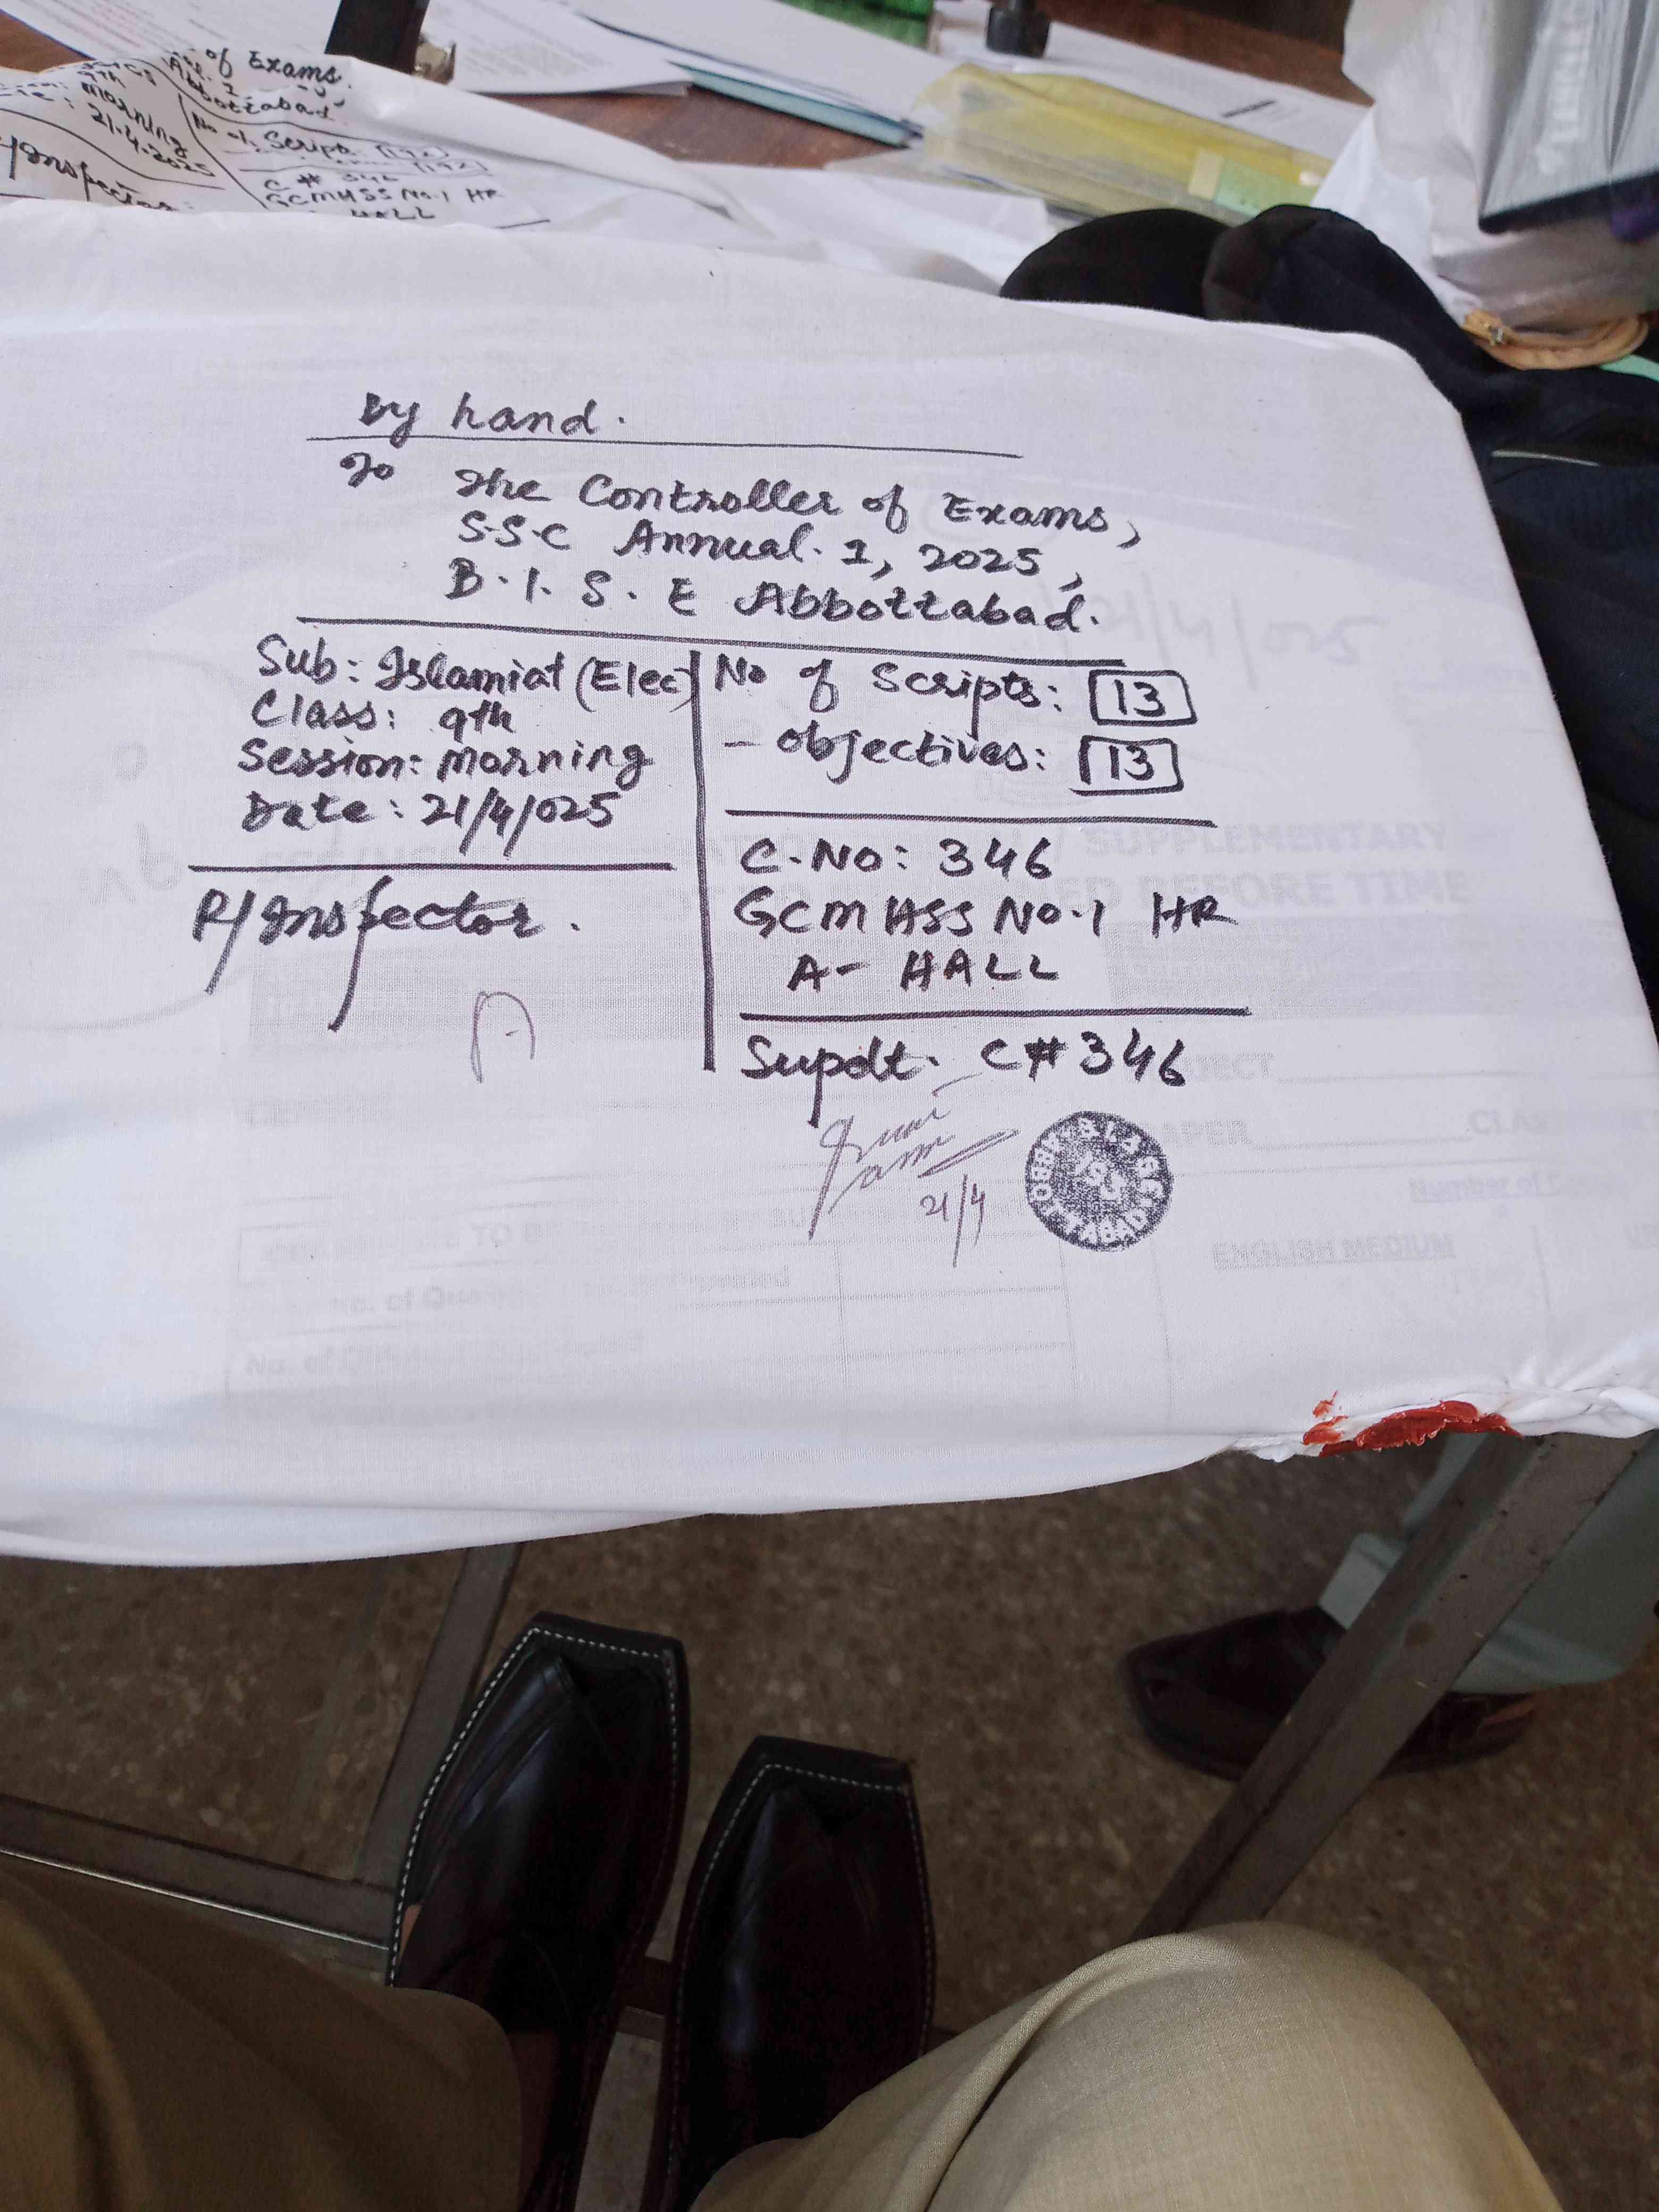 of Exams.
Abbottabad
morning
21.4.2025
No of Scripts
C # 346
GCMHSS No.1 HR
HALL
By hand.
To The Controller of Exams,
S.S.C Annual. 1, 2025,
B.I.S.E Abbottabad.
Sub: Islamiat (Elec)
Class: 9th
Session: Morning
Date: 21/4/025
R/Inspector.
No of Scripts: 13
- Objectives: 13
C.No: 346
GCMHSS No.1 HR
A- HALL
Supdt. C# 346
21/4
21/4/025
SUPPLEMENTARY
BEFORE TIME
PAPER
ENGLISH MEDIUM